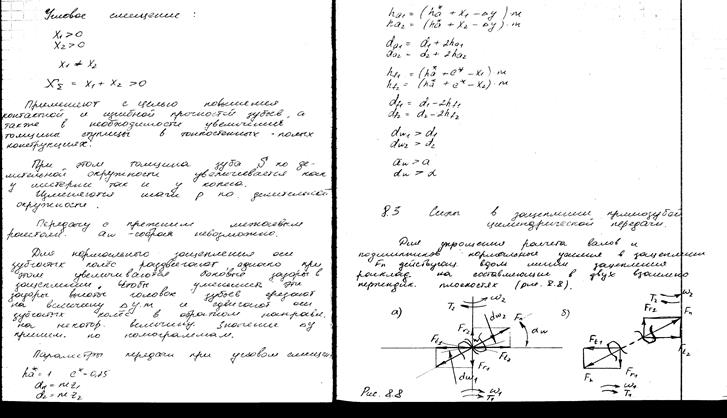 Угловое смещение :
x₁ > 0
x₂ > 0
x₁ ≠ x₂
x_Σ = x₁ + x₂ > 0
Применяют с целью повышения
контактной и изгибной прочности зубьев, а
также в необходимости увеличения
толщины ступицы в тонкостенных полых
конструкциях.
При этом толщина зуба S по де-
лительной окружности увеличивается как
у шестерни так и у колеса.
Изменяется шаг p по делительной
окружности.
Передачу с прежним межосевым
расстоян. aw - собрать невозможно.
Для нормального зацепления оси
зубчатых колёс раздвигают однако при
этом увеличиваются боковые зазоры в
зацеплении. Чтобы уменьшить эти
зазоры высоты головок зубьев срезают
на величину Δy·m и сдвигают оси
зубчатых колёс в обратном направл.
на некотор. величину. Значение Δy
приним. по номограммам.
Параметры передачи при угловом смещен.
ha* = 1 c* = 0,25
d₁ = mz₁
d₂ = mz₂
ha₁ = (ha* + x₁ - Δy)·m
ha₂ = (ha* + x₂ - Δy)·m
da₁ = d₁ + 2ha₁
da₂ = d₂ + 2ha₂
hf₁ = (ha* + c* - x₁)·m
hf₂ = (ha* + c* - x₂)·m
df₁ = d₁ - 2hf₁
df₂ = d₂ - 2hf₂
dw₁ > d₁
dw₂ > d₂
aw > a
αw > α
8.3 Силы в зацеплении прямозубой
цилиндрической передачи.
Для упрощения расчета валов и
подшипников нормальное усилие в зацеплении
Fn действующ. вдоль линии зацепления
расклад. на составляющие в двух взаимно
перпендик. плоскостях (рис. 8.8).
а) T₂ ω₂ Fr₂ dw₂ Fn αw
Ft₁ Ft₂
Fn Fr₁ dw₁
ω₁ T₁
б) T₂ ω₂ Fr₂ Fn
Ft₁ Ft₂
Fn Fr₁
ω₁ T₁
Рис. 8.8